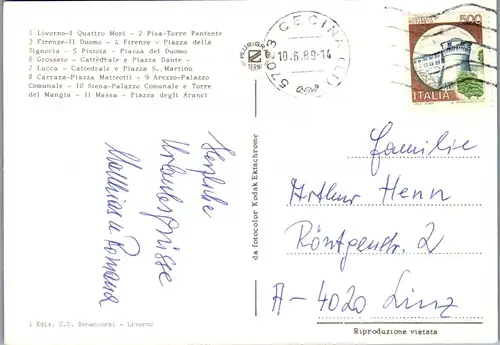 1 Livorno-I Quattro Mori - 2 Pisa-Torre Pentente
3 Firenze-Il Duomo - 4 Firenze - Piazza della
Signoria - 5 Pistoia - Piazza del Duomo
6 Grosseto - Cattedrale e Piazza Dante -
7 Lucca - Cattedrale e Piazza S. Martino
8 Carrara-Piazza Matteotti - 9 Arezzo-Palazzo
Comunale - 10 Siena-Palazzo Comunale e Torre
del Mangia - 11 Massa - Piazza degli Aranci
Herzliche
Urlaubsgrüsse
Matthias u Romana
1 Ediz. C.D. Bonaccorsi - Livorno
da fotocolor Kodak Ektachrome
57023 CECINA (LI)
10.6.89-14
500
ITALIA
Familie
Arthur Henn
Röntgenstr. 2
A-4020 Linz
Riproduzione vietata